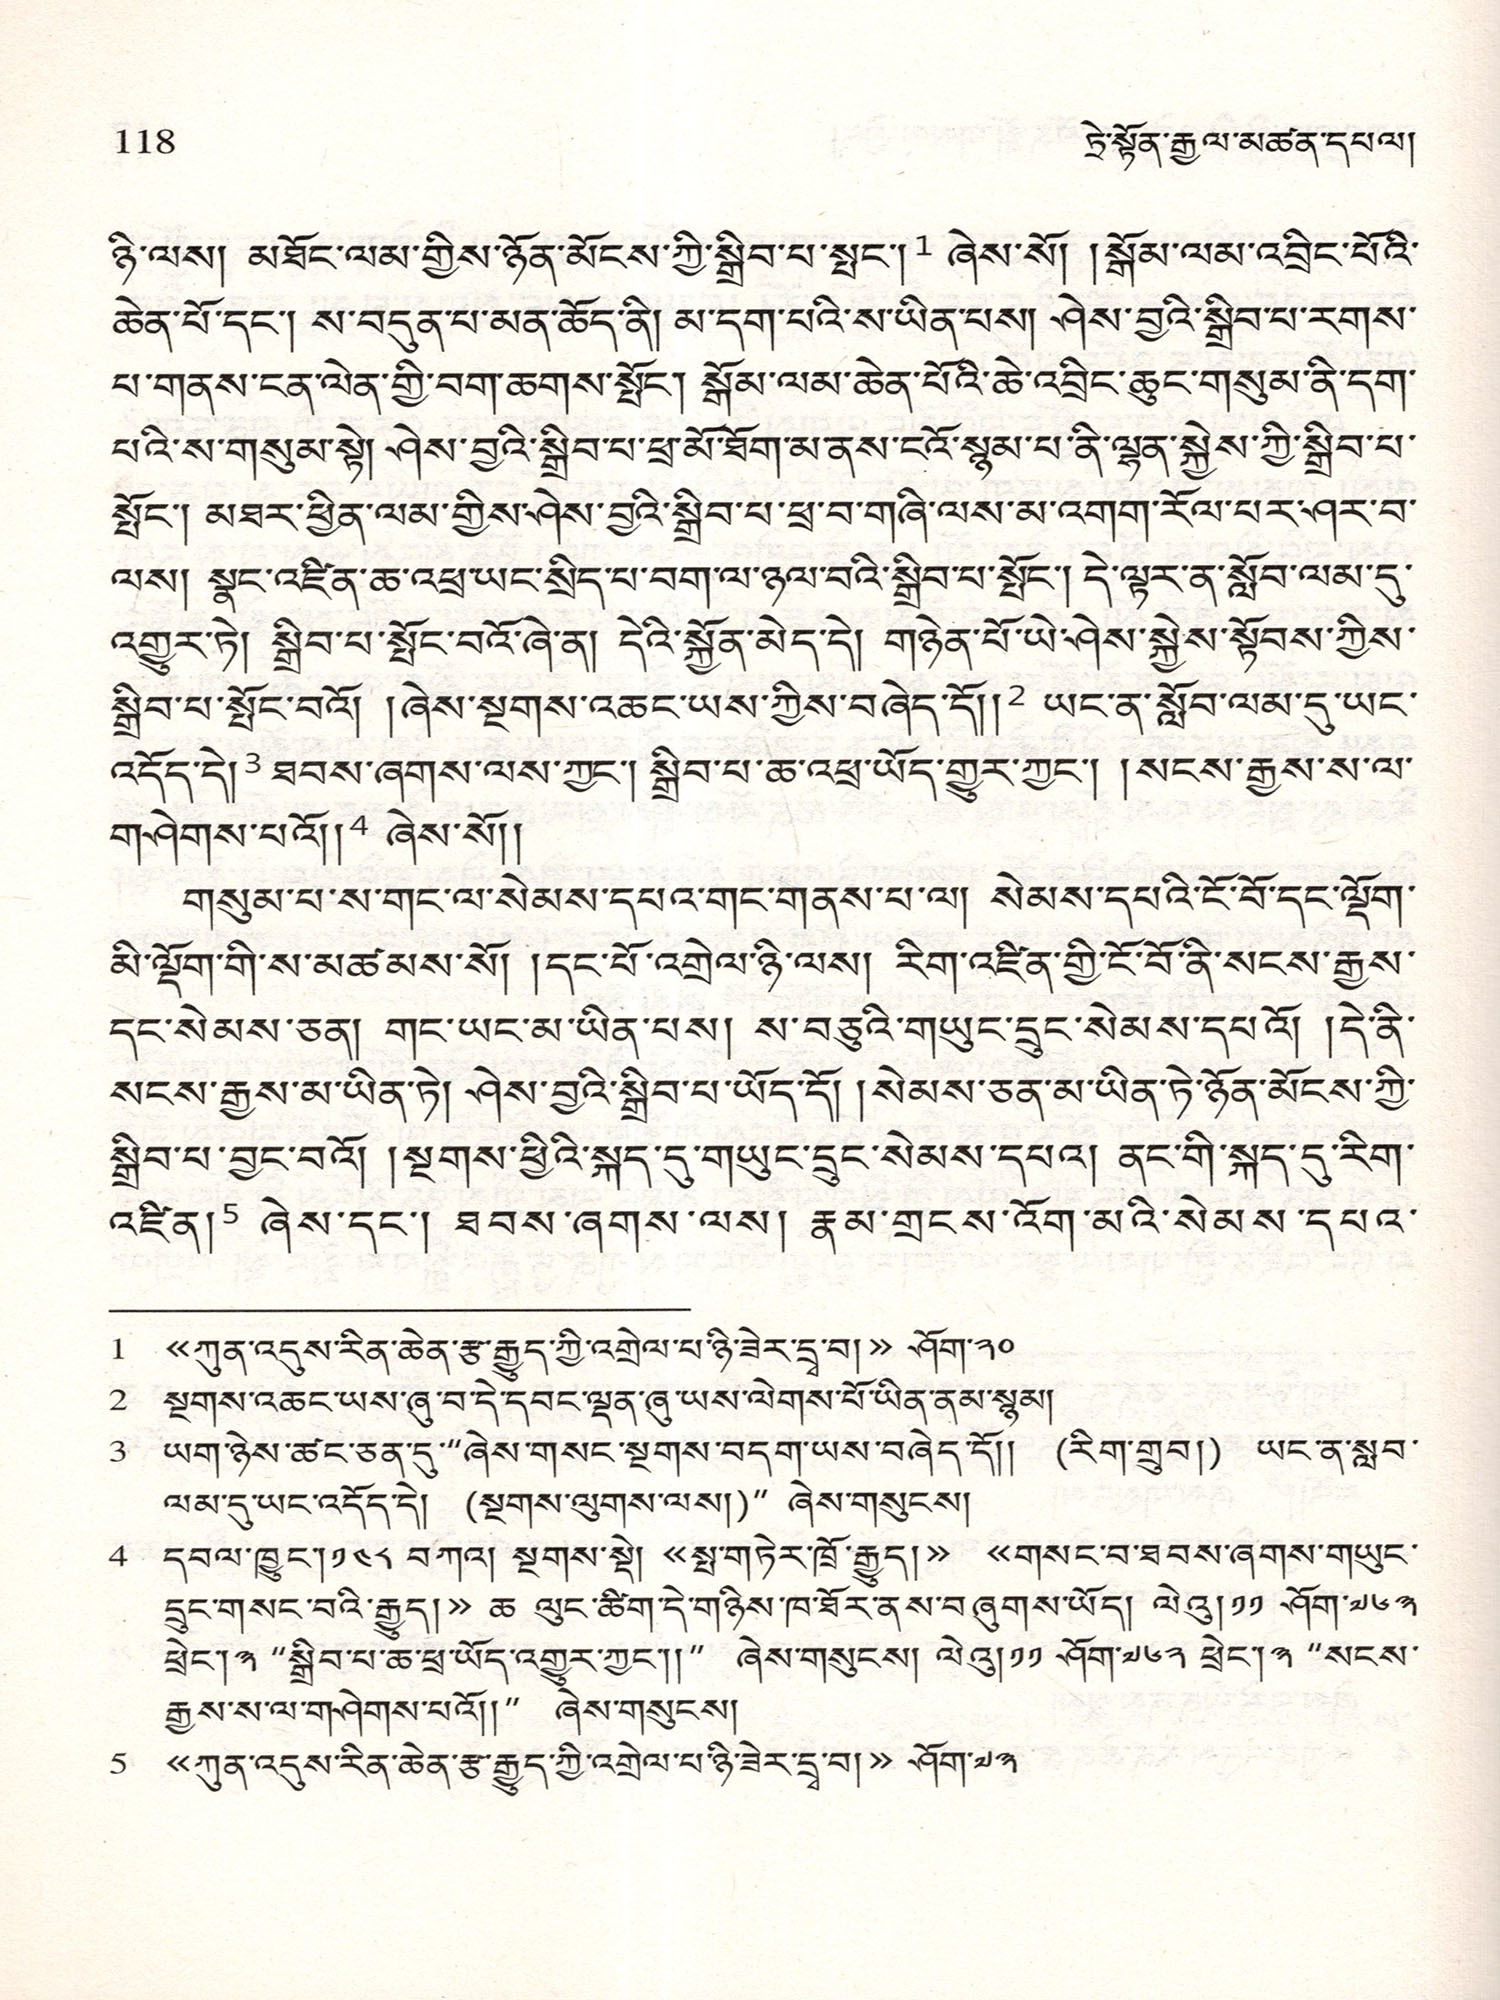 118
ཏྲེ་སྟོན་རྒྱལ་མཚན་དཔལ།
ཉི་ལས། མཐོང་ལམ་གྱིས་ཉོན་མོངས་ཀྱི་སྒྲིབ་པ་སྤང་།1 ཞེས་སོ། །སྒོམ་ལམ་འབྲིང་པོའི་
ཆེན་པོ་དང་། ས་བདུན་པ་མན་ཆོད་ནི། མ་དག་པའི་ས་ཡིན་པས། ཤེས་བྱའི་སྒྲིབ་པ་རགས་
པ་གནས་ངན་ལེན་གྱི་བག་ཆགས་སྤོང་། སྒོམ་ལམ་ཆེན་པོའི་ཆེ་འབྲིང་ཆུང་གསུམ་ནི་དག་
པའི་ས་གསུམ་སྟེ། ཤེས་བྱའི་སྒྲིབ་པ་ཕྲ་མོ་ཐོག་མ་ནས་ངའོ་སྙམ་པ་ནི་ལྷན་སྐྱེས་ཀྱི་སྒྲིབ་པ་
སྤོང་། མཐར་ཕྱིན་ལམ་གྱིས་ཤེས་བྱའི་སྒྲིབ་པ་ཕྲ་བ་གཞི་ལས་མ་འགག་རོལ་པར་ཤར་བ་
ལས། སྣང་འཛིན་ཆ་འཕྲ་ཡང་སྲིད་པ་བག་ལ་ཉལ་བའི་སྒྲིབ་པ་སྤོང་། དེ་ལྟར་ན་སློབ་ལམ་དུ་
འགྱུར་ཏེ། སྒྲིབ་པ་སྤོང་བའོ་ཞེ་ན། དེའི་སྐྱོན་མེད་དེ། གཉེན་པོ་ཡེ་ཤེས་སྐྱེས་སྟོབས་ཀྱིས་
སྒྲིབ་པ་སྤོང་བའོ། །ཞེས་སྔགས་འཆང་ཡས་ཀྱིས་བཞེད་དོ།།2 ཡང་ན་སློབ་ལམ་དུ་ཡང་
འདོད་དེ།3 ཐབས་ཞགས་ལས་ཀྱང་། སྒྲིབ་པ་ཆ་འཕྲ་ཡོད་གྱུར་ཀྱང་། །སངས་རྒྱས་ས་ལ་
གཤེགས་པའོ།།4 ཞེས་སོ།།
གསུམ་པ་ས་གང་ལ་སེམས་དཔའ་གང་གནས་པ་ལ། སེམས་དཔའི་ངོ་བོ་དང་ལྡོག་
མི་ལྡོག་གི་ས་མཚམས་སོ། །དང་པོ་འགྲེལ་ཉི་ལས། རིག་འཛིན་གྱི་ངོ་བོ་ནི་སངས་རྒྱས་
དང་སེམས་ཅན། གང་ཡང་མ་ཡིན་པས། ས་བཅུའི་གཡུང་དྲུང་སེམས་དཔའོ། །དེ་ནི་
སངས་རྒྱས་མ་ཡིན་ཏེ། ཤེས་བྱའི་སྒྲིབ་པ་ཡོད་དོ། །སེམས་ཅན་མ་ཡིན་ཏེ་ཉོན་མོངས་ཀྱི་
སྒྲིབ་པ་བྱང་བའོ། །སྔགས་ཕྱིའི་སྐད་དུ་གཡུང་དྲུང་སེམས་དཔའ། ནང་གི་སྐད་དུ་རིག་
འཛིན།5 ཞེས་དང་། ཐབས་ཞགས་ལས། རྣམ་གྲངས་འོག་མའི་སེམས་དཔའ་
1 «ཀུན་འདུས་རིན་ཆེན་རྩ་རྒྱུད་ཀྱི་འགྲེལ་པ་ཉི་ཟེར་དྲྭ་བ།» ཤོག་༢༠
2 སྔགས་འཆང་ཡས་ཞུ་བ་དེ་དབང་ལྡན་ཞུ་ཡས་ལེགས་པོ་ཡིན་ནམ་སྙམ།
3 ཡག་ཉེས་ཚང་ཅན་དུ་"ཞེས་གསང་སྔགས་བདག་ཡས་བཞེད་དོ།། (རིག་གྲུབ།) ཡང་ན་སླབ་
ལམ་དུ་ཡང་འདོད་དེ། (སྔགས་ལུགས་ལས།)" ཞེས་གསུངས།
4 དབལ་ཁྱུང་།༡༤༨ བཀའ། སྔགས་སྡེ། «སྤྱ་གཏེར་ཁྲོ་རྒྱུད།» «གསང་བ་ཐབས་ཞགས་གཡུང་
དྲུང་གསང་བའི་རྒྱུད།» ཆ ལུང་ཚིག་དེ་གཉིས་ཁ་ཐོར་ནས་བཞུགས་ཡོད། ལེའུ།༡༡ ཤོག་༧༦༣
ཕྲེང་།༣ "སྒྲིབ་པ་ཆ་ཕྲ་ཡོད་འགྱུར་ཀྱང་།།" ཞེས་གསུངས། ལེའུ།༡༡ ཤོག་༧༦༢ ཕྲེང་།༣ "སངས་
རྒྱས་ས་ལ་གཤེགས་པའོ།།" ཞེས་གསུངས།
5 «ཀུན་འདུས་རིན་ཆེན་རྩ་རྒྱུད་ཀྱི་འགྲེལ་པ་ཉི་ཟེར་དྲྭ་བ།» ཤོག་༧༣